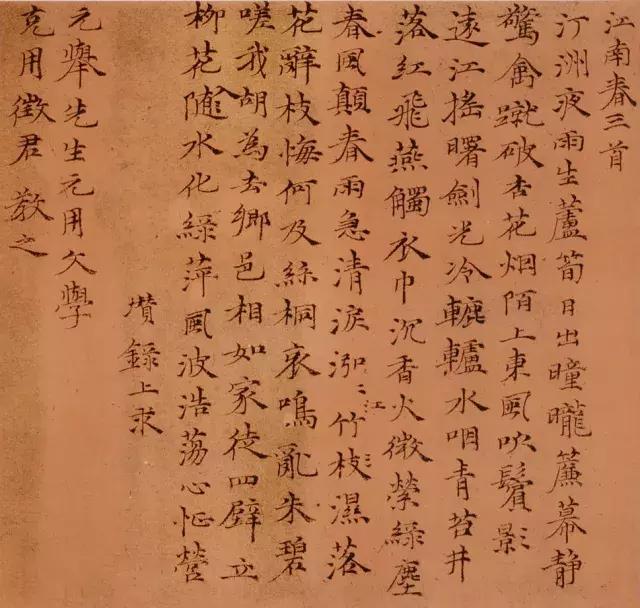 江南春三首
汀洲夜雨生蘆筍日出曈曨簾幕静
驚禽蹴破杏花烟陌上東風吹鬢影
遠江搖曙劍光冷轆轤水咽青苔井
落紅飛燕觸衣巾沉香火微縈綠塵
春風顛春雨急清淚泓泓江竹枝濕落
花辭枝悔何及絲桐哀鳴亂朱碧
嗟我胡為去鄉邑相如家徒四壁立
柳花隨水化綠萍風波浩蕩心怔營
瓚錄上求
元舉先生元用文學
克用徵君 教之